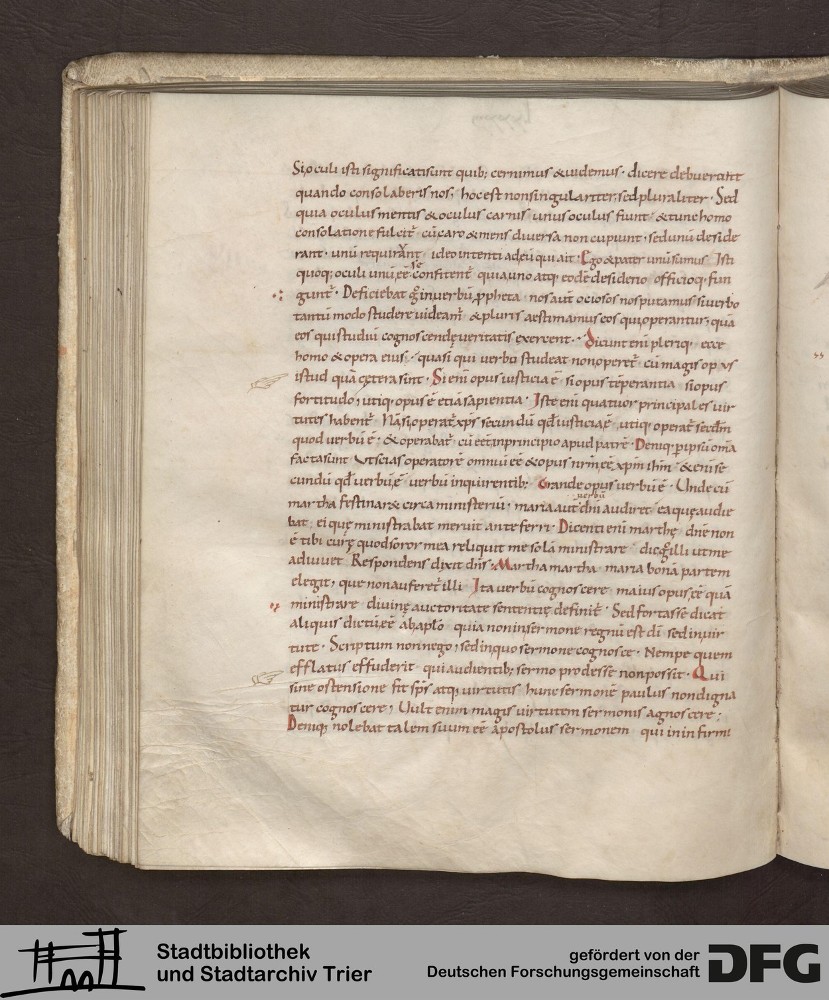 Si oculi isti significati sunt quib; cernimus & uidemus · dicere debuerant
quando consolaberis nos; hoc est non singulariter, sed pluraliter · Sed
quia oculus mentis & oculus carnis unus oculus fiunt & tunc homo
consolatione fulcit̄ cū caro & mens diuersa non cupiunt · sed unū deside
rant · unū requirant ideo intenti ad eū qui ait · Ego & pater unū sumus Isti
quoq; oculi unū se ēē confitent̄ quia uno atq; eodē desiderio officioq; fun
gunt̄ · Deficiebat in uerbū ꝓpheta nos aut̄ ociosos nos putamus si uerbo
tantū modo studere uideam̄ & pluris aestimamus eos qui operantur, quā
eos qui studiū cognoscendę ueritatis exercent · Dicunt enī pleriq; ecce
homo & opera eius · quasi qui uerbo studeat non operet̄ cū magis opus
istud quā cętera sint · Si enī opus iusticia ē si opus tēperantia si opus
fortitudo, utiq; opus ē etiā sapientia · Iste enī quatuor principales uir
tutes habent̄ Nā si operat̄ xp̄s secundū qd̄ iusticia ē, utiq; operat̄ secdm̄
quod uerbū ē; & operabat̄ cū eēt in principio apud patrē · Deniq; p ipsū om̄a
facta sunt Ut scias operatorē omniū ēē & opus nr̄m ēē xp̄m ih̄m & eni se
cundū qd̄ uerbū, ē uerbū inquirentib; Grande opus uerbū ē · Unde cū
martha festinar& circa ministeriū, maria aut̄ uerbū dn̄i audiret ea quę audie
bat, ei quę ministrabat meruit anteferri · Dicenti enī marthę dn̄e non
ē tibi curę quod soror mea reliquit me solā ministrare dic illi ut me
adiuuet Respondens dixit dn̄s · Martha martha maria bonā partem
elegit, que non auferet̄ illi Ita uerbū cognoscere maius opus, ēē quā
ministrare diuinę auctoritate sententię definit̄ · Sed fortasse dicat
aliquis dictū, ēē ab aplō quia non in sermone regnū est dī sed in uir
tute · Scriptum non nego, sed in quo sermone cognosce · Nempe quem
efflatus effuderit qui audientib; sermo prodesse non possit · Qui
sine ostensione fit sp̄s atq; uirtutis hunc sermonē paulus non digna
tur cognoscere, Uult enim magis uirtutem sermonis agnoscere;
Deniq; nolebat talem suum ēē apostolus sermonem qui in infirmi
Stadtbibliothek
und Stadtarchiv Trier
gefördert von der
Deutschen Forschungsgemeinschaft
DFG